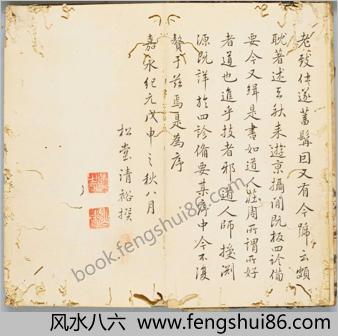 老致仕遂蓄髯因又有今號云頗
耽著述去秋来遊京攝間既校四診備
要今又緝是書如道人莊周所謂所好
者道也進乎技者邪道人師授淵
源既詳於四診備要某序中今不復
贅于茲焉是為序
嘉永紀元戊申之秋八月
松堂清裕撰
book.fengshui86.com
风水八六 www.fengshui86.com